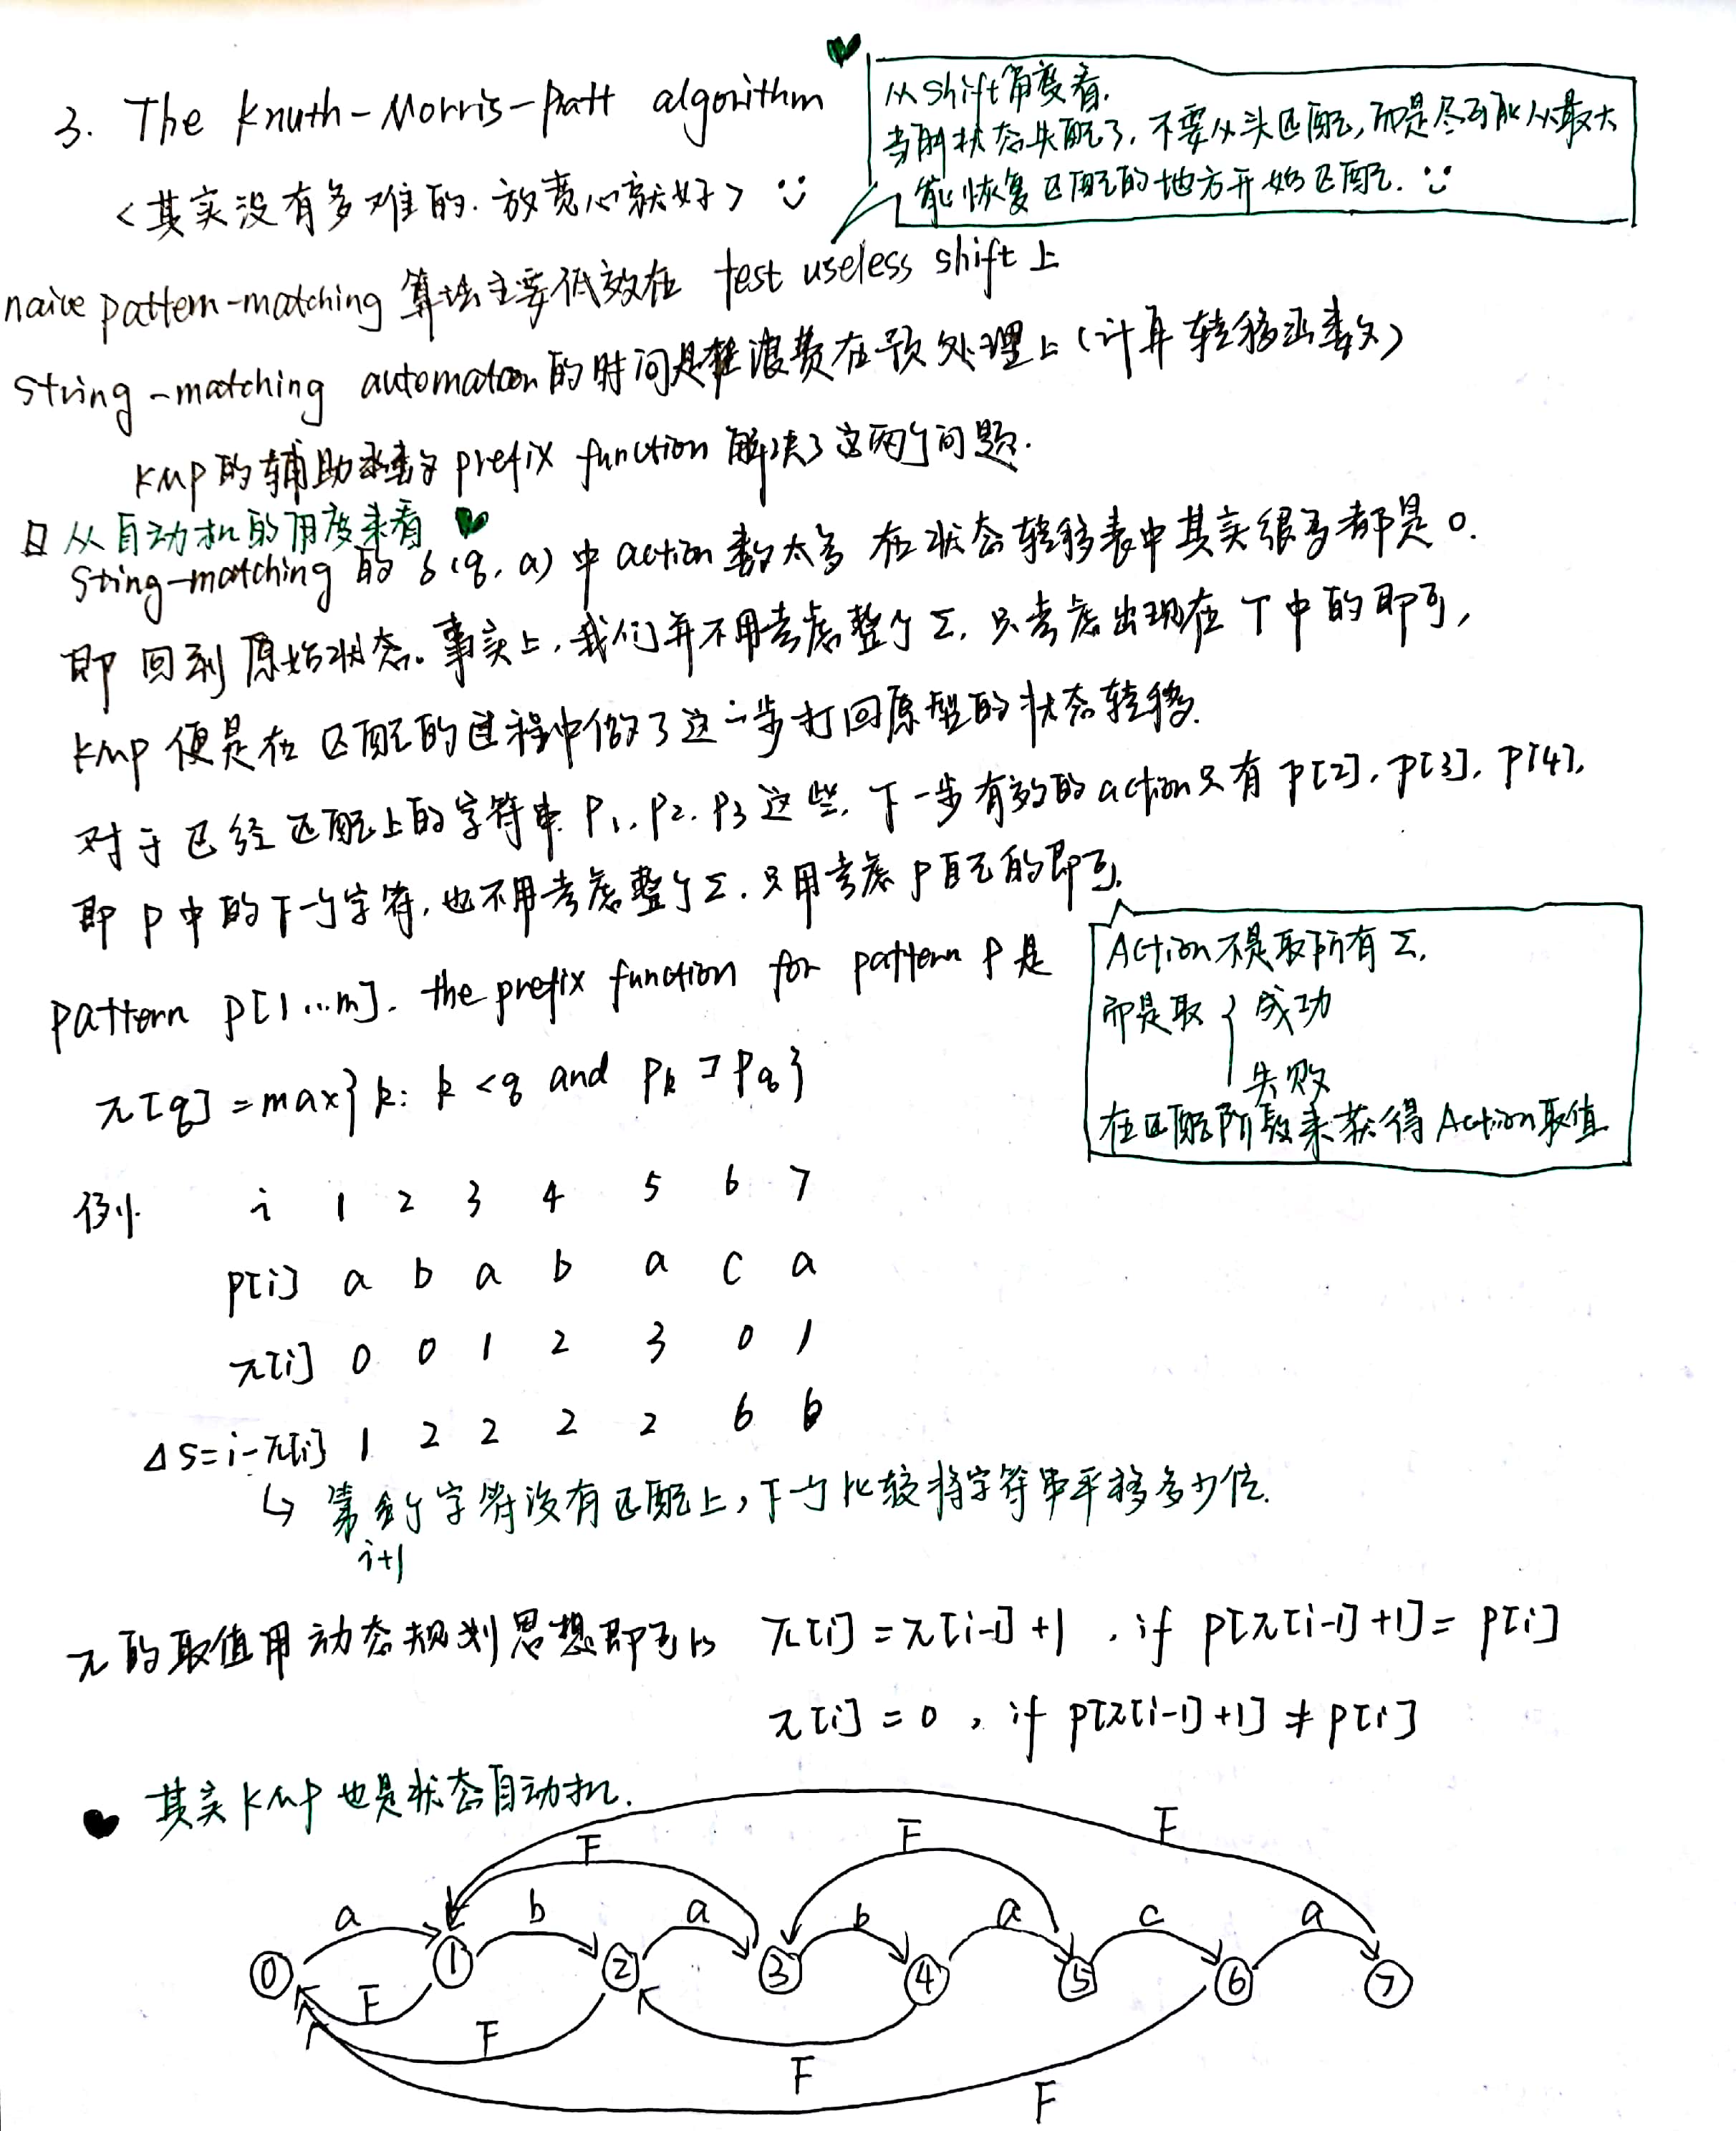 3. The Knuth-Morris-Pratt algorithm
<其实没有多难的. 放宽心就好>
从shift角度看.
当前状态失配了, 不要从头匹配, 而是尽可能从最大
能恢复匹配的地方开始匹配.
naive pattern-matching 算法主要低效在 test useless shift 上
String-matching automaton的时间是浪费在预处理上(计算转移函数)
KMP的辅助函数 prefix function 解决了这两个问题.
从自动机的角度来看
String-matching 的 δ(q, a) 中 action 数太多 在状态转移表中其实很多都是 0.
即 回到 原始状态。事实上, 我们并不用考虑整个 Σ, 只考虑出现在 T 中的即可,
KMP 便是在 匹配的过程中做了这一步打回原型的状态转移.
对于已经匹配上的字符串 P1, P2, P3 这些, 下一步有效的 action 只有 P[2], P[3], P[4],
即 P 中的下一个字符, 也不用考虑整个 Σ. 只用考虑 P 自己的即可.
Action 不是取所有 Σ,
而是取 { 成功
失败
在匹配阶段来获得 Action 取值
pattern P[1...m]. the prefix function for pattern P 是
π[q] = max{ k: k < q and Pk ⊐ Pq }
例. i 1 2 3 4 5 6 7
P[i] a b a b a c a
π[i] 0 0 1 2 3 0 1
Δs=i-π[i] 1 2 2 2 2 6 6
↳ 第 个字符没有匹配上, 下个比较将字符串平移多少位.
i+1
π 的取值用动态规划思想即可 π[i] = π[i-1]+1 , if P[π[i-1]+1] = P[i]
π[i] = 0 , if P[π[i-1]+1] ≠ P[i]
其实 KMP 也是状态自动机.
F
F F
a b a b a c a
0 1 2 3 4 5 6 7
F F F F